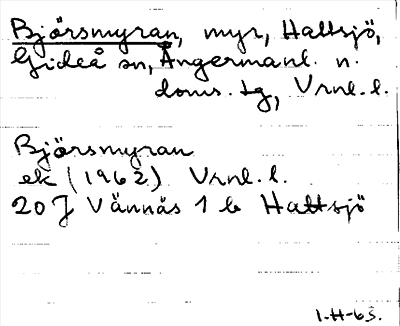 Björsmyran, myr, Hattsjö,
Gideå sn, Ångermanl. n.
doms. tg, Vrnl. l.
Björsmyran
ek (1962) Vrnl. l.
20 J Vännäs 1 b Hattsjö
1-H-63.